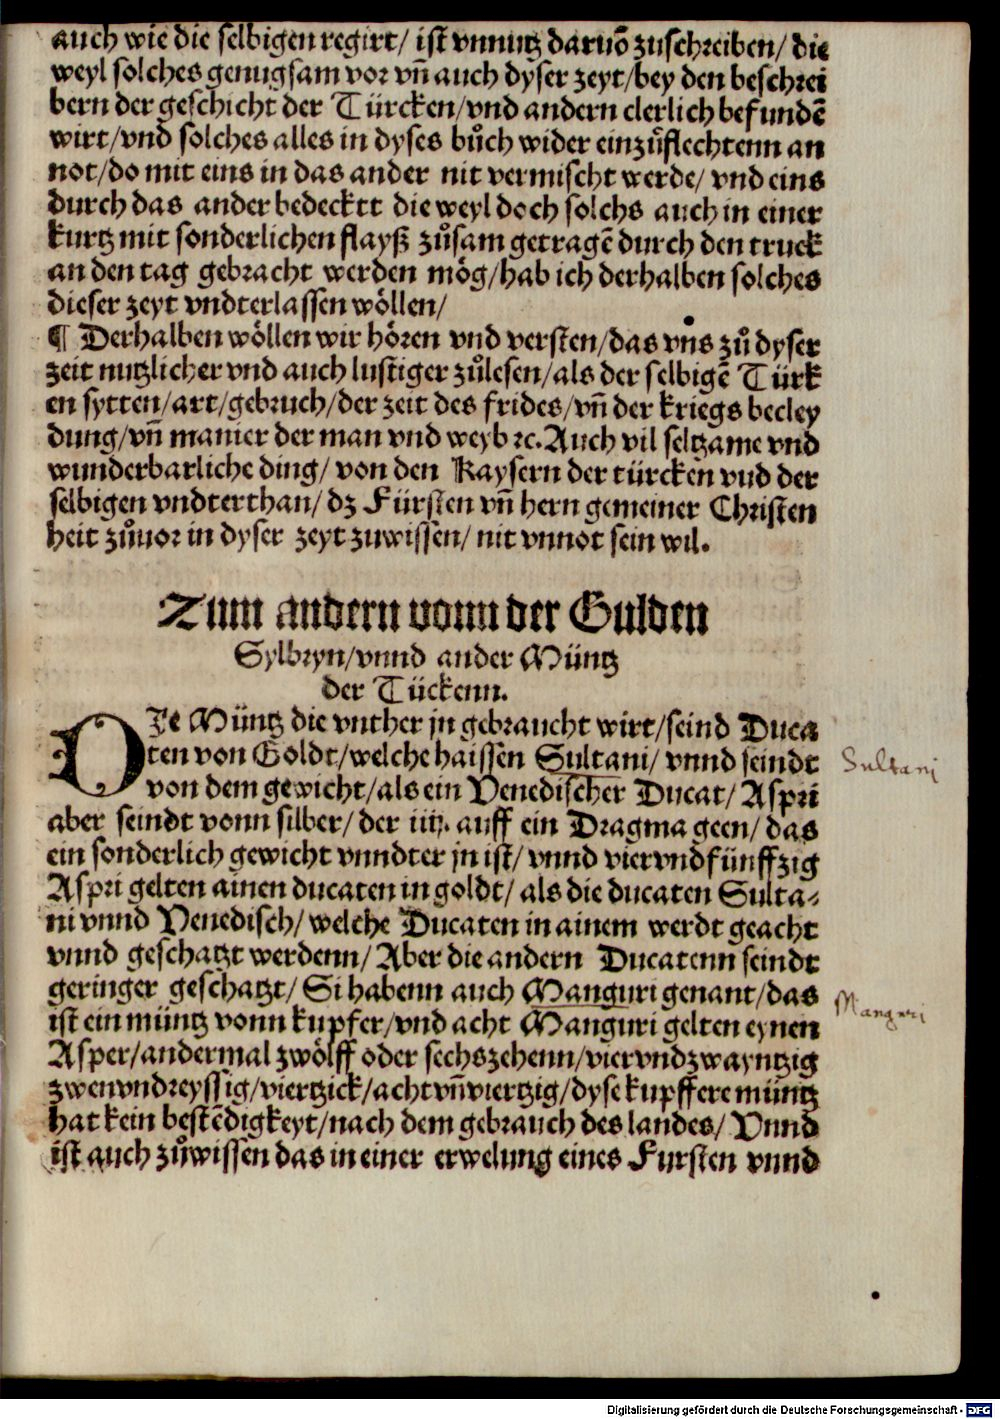 auch wie die selbigen regirt/ ist vnnutz daruō zuschreiben/ die
weyl solches genugsam vor vn̄ auch dyser zeyt/bey den beschrei
bern der geschicht der Türcken/vnd andern clerlich befundē
wirt/vnd solches alles in dyses bůch wider einzůflechtenn an
not/do mit eins in das ander nit vermischt werde/ vnd eins
durch das ander bedecktt die weyl doch solchs auch in einer
kurtz mit sonderlichen flayß zůsam getragē durch den truck
an den tag gebracht werden mög/hab ich derhalben solches
dieser zeyt vndterlassen wöllen/
¶ Derhalben wöllen wir hören vnd versten/das vns zů dyser
zeit nutzlicher vnd auch lustiger zůlesen/als der selbigē Türk
en sytten/art/gebruch/der zeit des frides/vn̄ der kriegs becley
dung/vn̄ manier der man vnd weyb ꝛc. Auch vil seltzame vnd
wunderbarliche ding/ von den Kaysern der türcken vnd der
selbigen vndterthan/ dz Fürsten vn̄ hern gemeiner Christen
heit zůuor in dyser zeyt zuwissen/ nit vnnot sein wil.
Zum andern vonn der Gulden
Sylbryn/vnnd ander Müntz
der Tückenn.
DJe Müntz die vnther jn gebraucht wirt/seind Duca
ten von Goldt/welche haissen Sultani/ vnnd seindt
von dem gewicht/als ein Venedischer Ducat/ Aspri
aber seindt vonn silber/ der iiij. auff ein Dragma geen/ das
ein sonderlich gewicht vnndter jn ist/ vnnd viervndfünffzig
Aspri gelten ainen ducaten in goldt/ als die ducaten Sulta-
ni vnnd Venedisch/ welche Ducaten in ainem werdt geacht
vnnd geschatzt werdenn/ Aber die andern Ducatenn seindt
geringer geschatzt/ Si habenn auch Manguri genant/das
ist ein müntz vonn kupfer/vnd acht Manguri gelten eynen
Asper/andermal zwölff oder sechszehenn/viervndzwayntzig
zwenvndreyssig/viertzick/acht vn̄ viertzig/dyse kupffere müntz
hat kein bestēdigkeyt/nach dem gebrauch des landes/ Vnnd
ist auch zůwissen das in einer erwelung eines Fursten vnnd
Sultanj
Mangeri
Digitalisierung gefördert durch die Deutsche Forschungsgemeinschaft - DFG